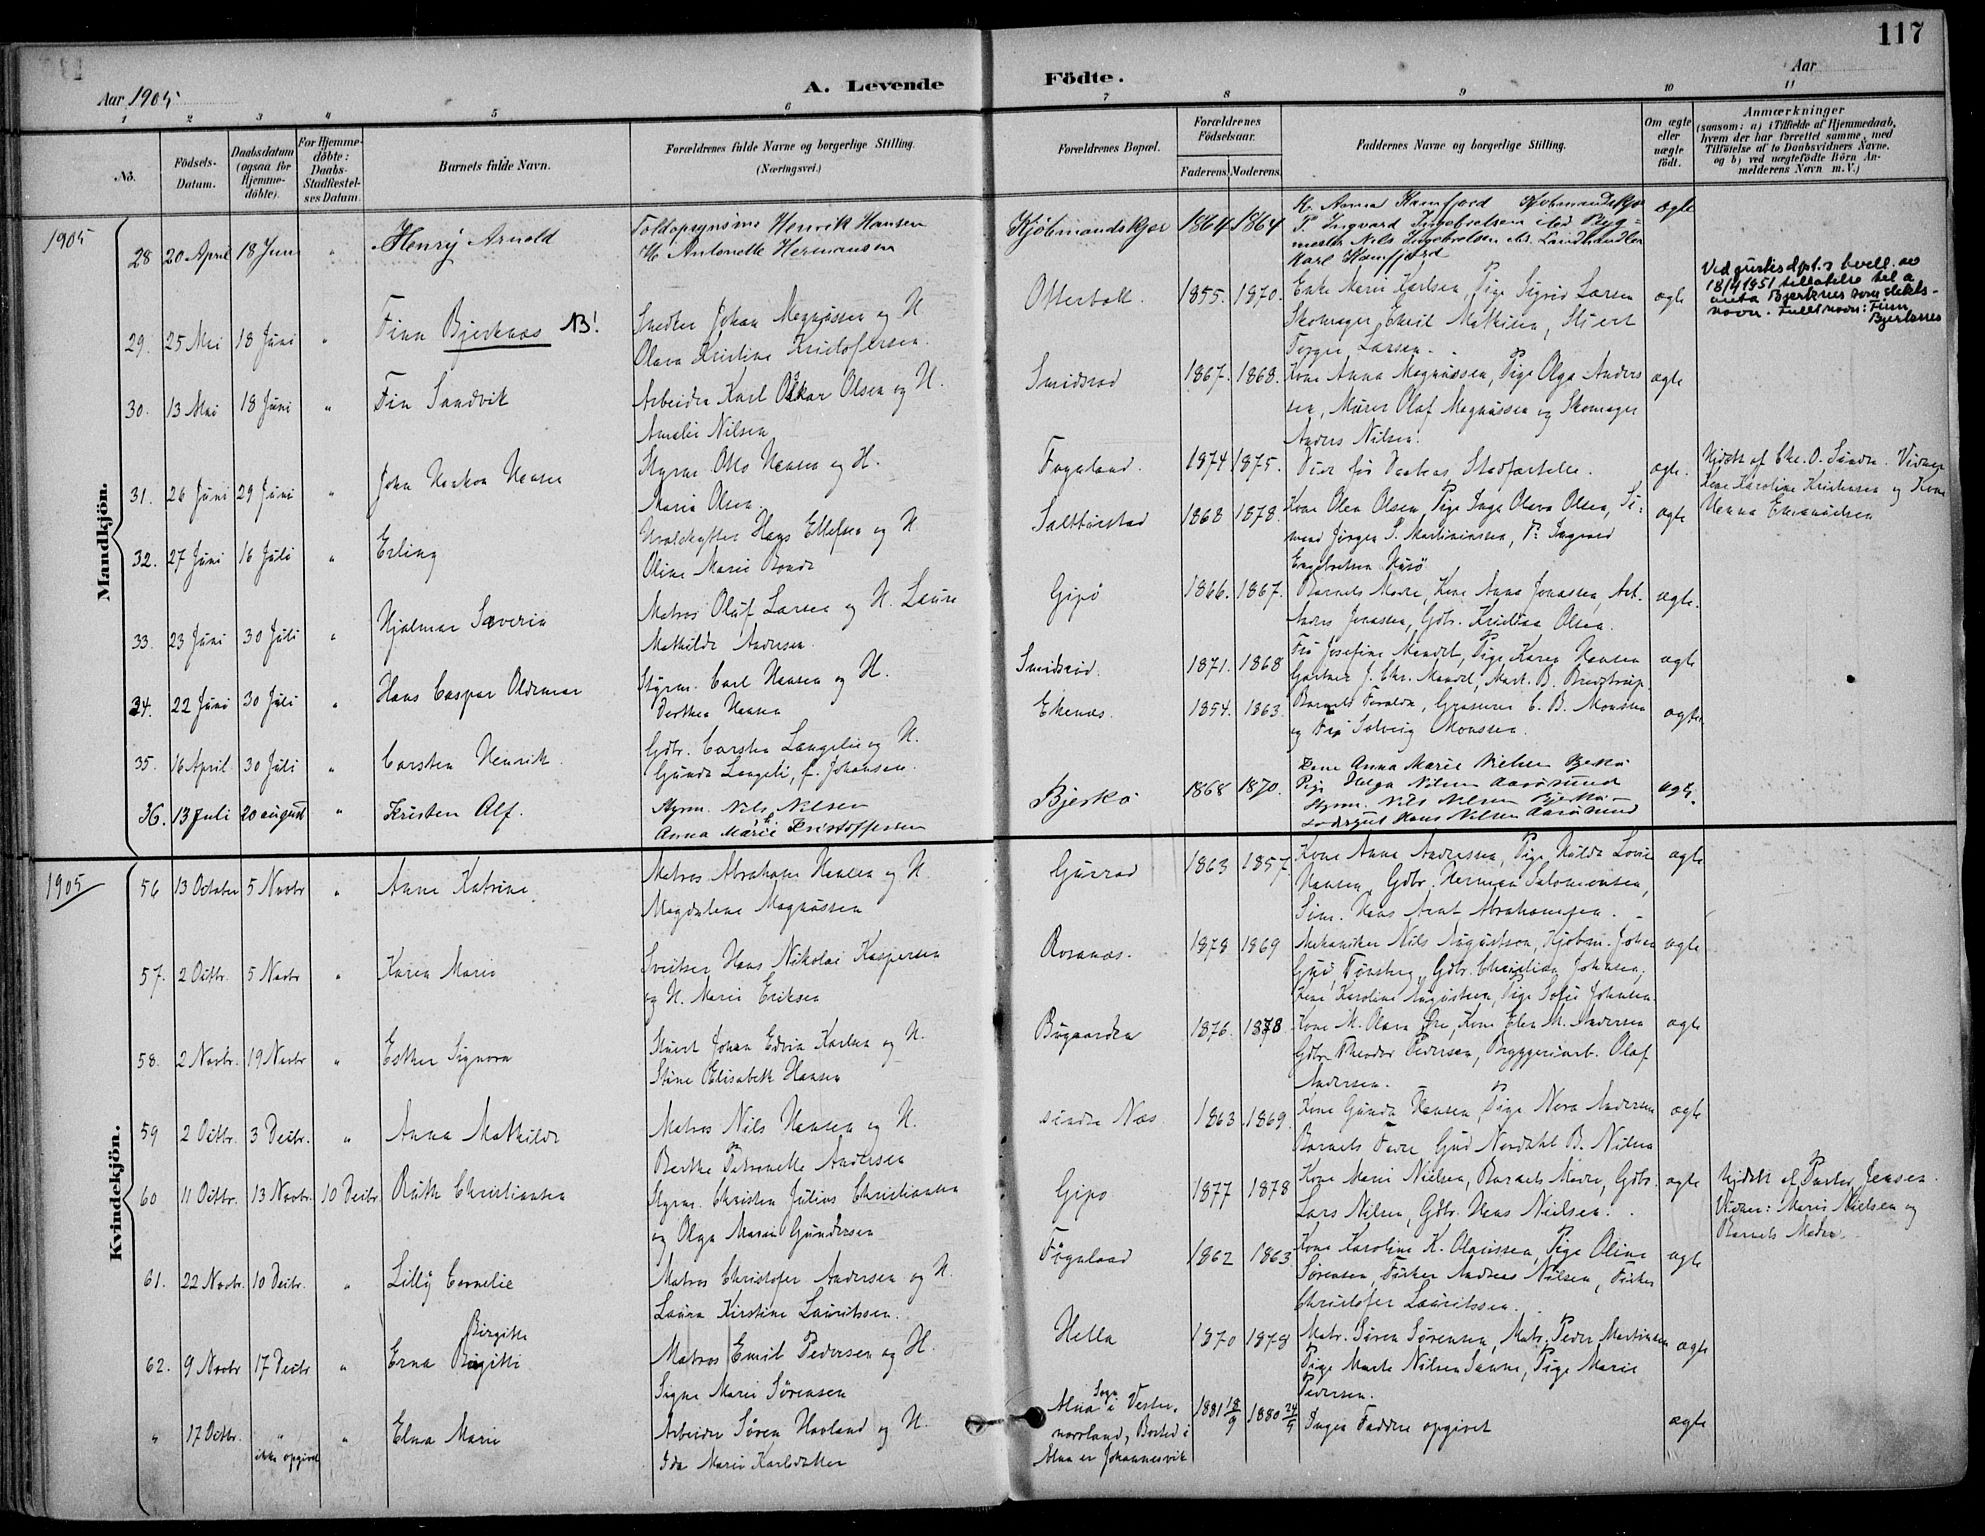 117
A. Levende Födte.
Aar 1905
Aar
1 2 3 4 5 6 7 8 9 10 11
No.
Födsels-Datum.
Daabsdatum (ogsaa for Hjemme-döbte).
For Hjemme-döbte: Daabs-Stadfæstel-ses Datum.
Barnets fulde Navn.
Forældrenes fulde Navne og borgerlige Stilling. (Næringsvei.)
Forældrenes Bopæl.
Forældrenes Födselsaar.
Faderens. Moderens.
Faddernes Navne og borgerlige Stilling.
Om ægte eller uægte födt.
Anmærkninger
(saasom: a) i Tilfælde af Hjemmedaab, hvem der har forrettet samme, med Tilföielse af to Daabsvidners Navne. og b) ved uægtefödte Börn An-melderens Navn m. V.)
Mandkjön.
1905
28 20 April 18 Juni " Henry Arnold
Toldopsynsm. Henrik Hansen
H. Antonette Hermansen
Kjøbmandskjær 1864 1864
K. Anna Kamfjord
P. Ingvard Ingebretsen
Nils Ingebretsen Landhandler
Karl Kamfjord
ægte
29. 25 Mai 18 Juni " Finn Bjerknæs NB!
Snedker Johan Magnussen og H.
Olava Kristine Kristofersen.
Otterbæk. 1855. 1870.
Enke Marie Karlsen, Pige Sigrid Larsen
Skomager Emil Mathisen, Stuert
Torger Larsen.
ægte
Ved justisdpt.s bevill. av
18/4 1951 tillatelse til å
anta Bjerknes som slekts-
navn. Fullt navn: Finn
Bjerknes
30. 13 Mai 18 Juni " Fin Sandvik
Arbeider Karl Oskar Olsen og H.
Amalie Nilsen
Smidsrød 1867. 1868.
Kone Anna Magnussen, Pige Olga Anders
sen, Murer Olaf Magnussen og Skomager
Anders Nilsen.
ægte
31. 26 Juni 29 Juni " John Haakon Hansen
Styrm. Otto Hansen og H.
Maria Olsen
Fognland. 1874 1875.
Død før Daabens Stadfæstelse.
ægte.
Hjdøbt af Chr. O. Sundre. Vidner
Kone Karoline Kristensen og Kone
Hanna Emanuelsen
32. 27 Juni 16 Juli " Erling
Hvalskytter Hans Ellefsen og H.
Oline Marie Bonde
Saltbustad 1868 1878.
Kone Olea Olsen, Pige Inga Olava Olsen, Sø-
mand Jørgen S. Martininssen, P. Ingvard
Engebretsen Husø
ægte
33. 23 Juni 30 Juli " Hjalmar Severin
Matros Oluf Larsen og H. Laura
Mathilde Andersen.
Gipø 1866. 1867.
Barnets Moder, Kone Anna Jonassen, Arb.
Anders Jonassen, Gdbr. Kristian Olsen.
ægte.
34. 22 Juni 30 Juli " Hans Caspar Oldemar
Styrm. Carl Hansen og H.
Dorthea Hansen
Smidsrød. 1871. 1868
Fru Josefine Mandel, Pige Karen Hansen
Gartner J. Chr. Mandel, Mask. B. Bredstrup.
ægte
35. 16 April 30 Juli " Carsten Henrik
Gdbr. Carsten Langeli og H.
Gunda Langeli, f. Johansen.
Ekenæs. 1854. 1863.
Barnets Forældre, Grosserer C. B. Monssen
og Frø. Solveig Monssen.
ægte
36. 13 Juli 20 august " Kristen Alf.
Styrm. Nils Nilsen
Anna Marie Kristoffersen
Bjerkø 1868 1870.
Kone Anna Marie Nielsen Bjerkø
Pige Helga Nilsen Aarøsund
Styrm. Nils Nilsen Bjerkø
Lodsgut Hans Nilsen Aarøsund
ægte.
Kvindekjön.
1905
56 13 October 5 Novbr " Anne Katrine.
Matros Abraham Hansen og H.
Magdalene Magnussen
Gurrød 1863 1857.
Kone Anna Andersen, Pige Hulda Lovise
Hansen, Gdbr. Herman Salomonsen,
Søm. Hans Arnt Abrahamsen.
ægte
57. 2 Octbr. 5 Novbr " Karen Marie
Sveitser Hans Nikolai Kaspersen
og H. Marie Eriksen
Rosanæs. 1878 1869
Mekaniker Nils Augustson, Kjøbm. Johan
Gjø, Tønsberg, Gdbr. Christian Johnsen,
Kone Karoline Augustsen, Pige Sofie Johnsen.
ægte
58. 2 Novbr. 19 Novbr " Esther Signora
Stuert Johan Edvin Karlsen og H.
Stine Elisabeth Hansen
Bugaarden 1876. 1878.
Kone M. Olava Øre, Kone Elen M. Andersen
Gdbr Theodor Pedersen, Bryggeriarb. Olaf
Andersen.
ægte
59 2 Octbr. 3 Decbr. " Anna Mathilde
Matros Nils Hansen og H.
Berthe Petronelle Andersen
søndre Næs. 1863. 1869.
Kone Gunda Hansen, Pige Nora Andersen
Barnets Fader, Gjød Nordahl B. Nilsen
ægte
60 11 Octbr. 13 Novbr. 10 Decbr. Ruth Christiansen
Styrm. Christen Julius Christiansen
og Olga Maren Gundersen
Gipø 1877 1878
Kone Marie Nielsen, Barnets Moder, Gdbr.
Lars Nilsen, Gdbr. Hans Nielsen.
ægte
Hjdøbt af Pastor Jensen.
Vidner: Marie Nielsen og
Barnets Moder.
61. 22 Novbr. 10 Decbr. " Lilly Cornelie
Matros Christofer Andersen og H.
Laura Kirstine Lauritssen.
Føgnland 1862 1863
Kone Karoline K. Olavssen, Pige Oline
Sørensen, Fisker Andreas Nilsen, Fisker
Christofer Lauritssen.
ægte
62. 9 Novbr 17 Decbr " Erna Birgitte
Birgitte
Matros Emil Pedersen og H.
Signe Marie Sørensen
Hella 1870 1878
Matr. Søren Sørensen, Matr. Peder Martinsen
Pige Marte Nilsen Sanne, Pige Marie
Pedersen.
ægte
" 17 Octbr. " ikke opgivet " Elna Marie
Arbeider Søren Havland og H.
Ida Marie Karlsdatter
Alnø Sogn i Vester-
norrland, Bosted i
Alnø er Johannesvik
1881 18/9 1880 24/9
Ingen Faddere opgivet
ægte